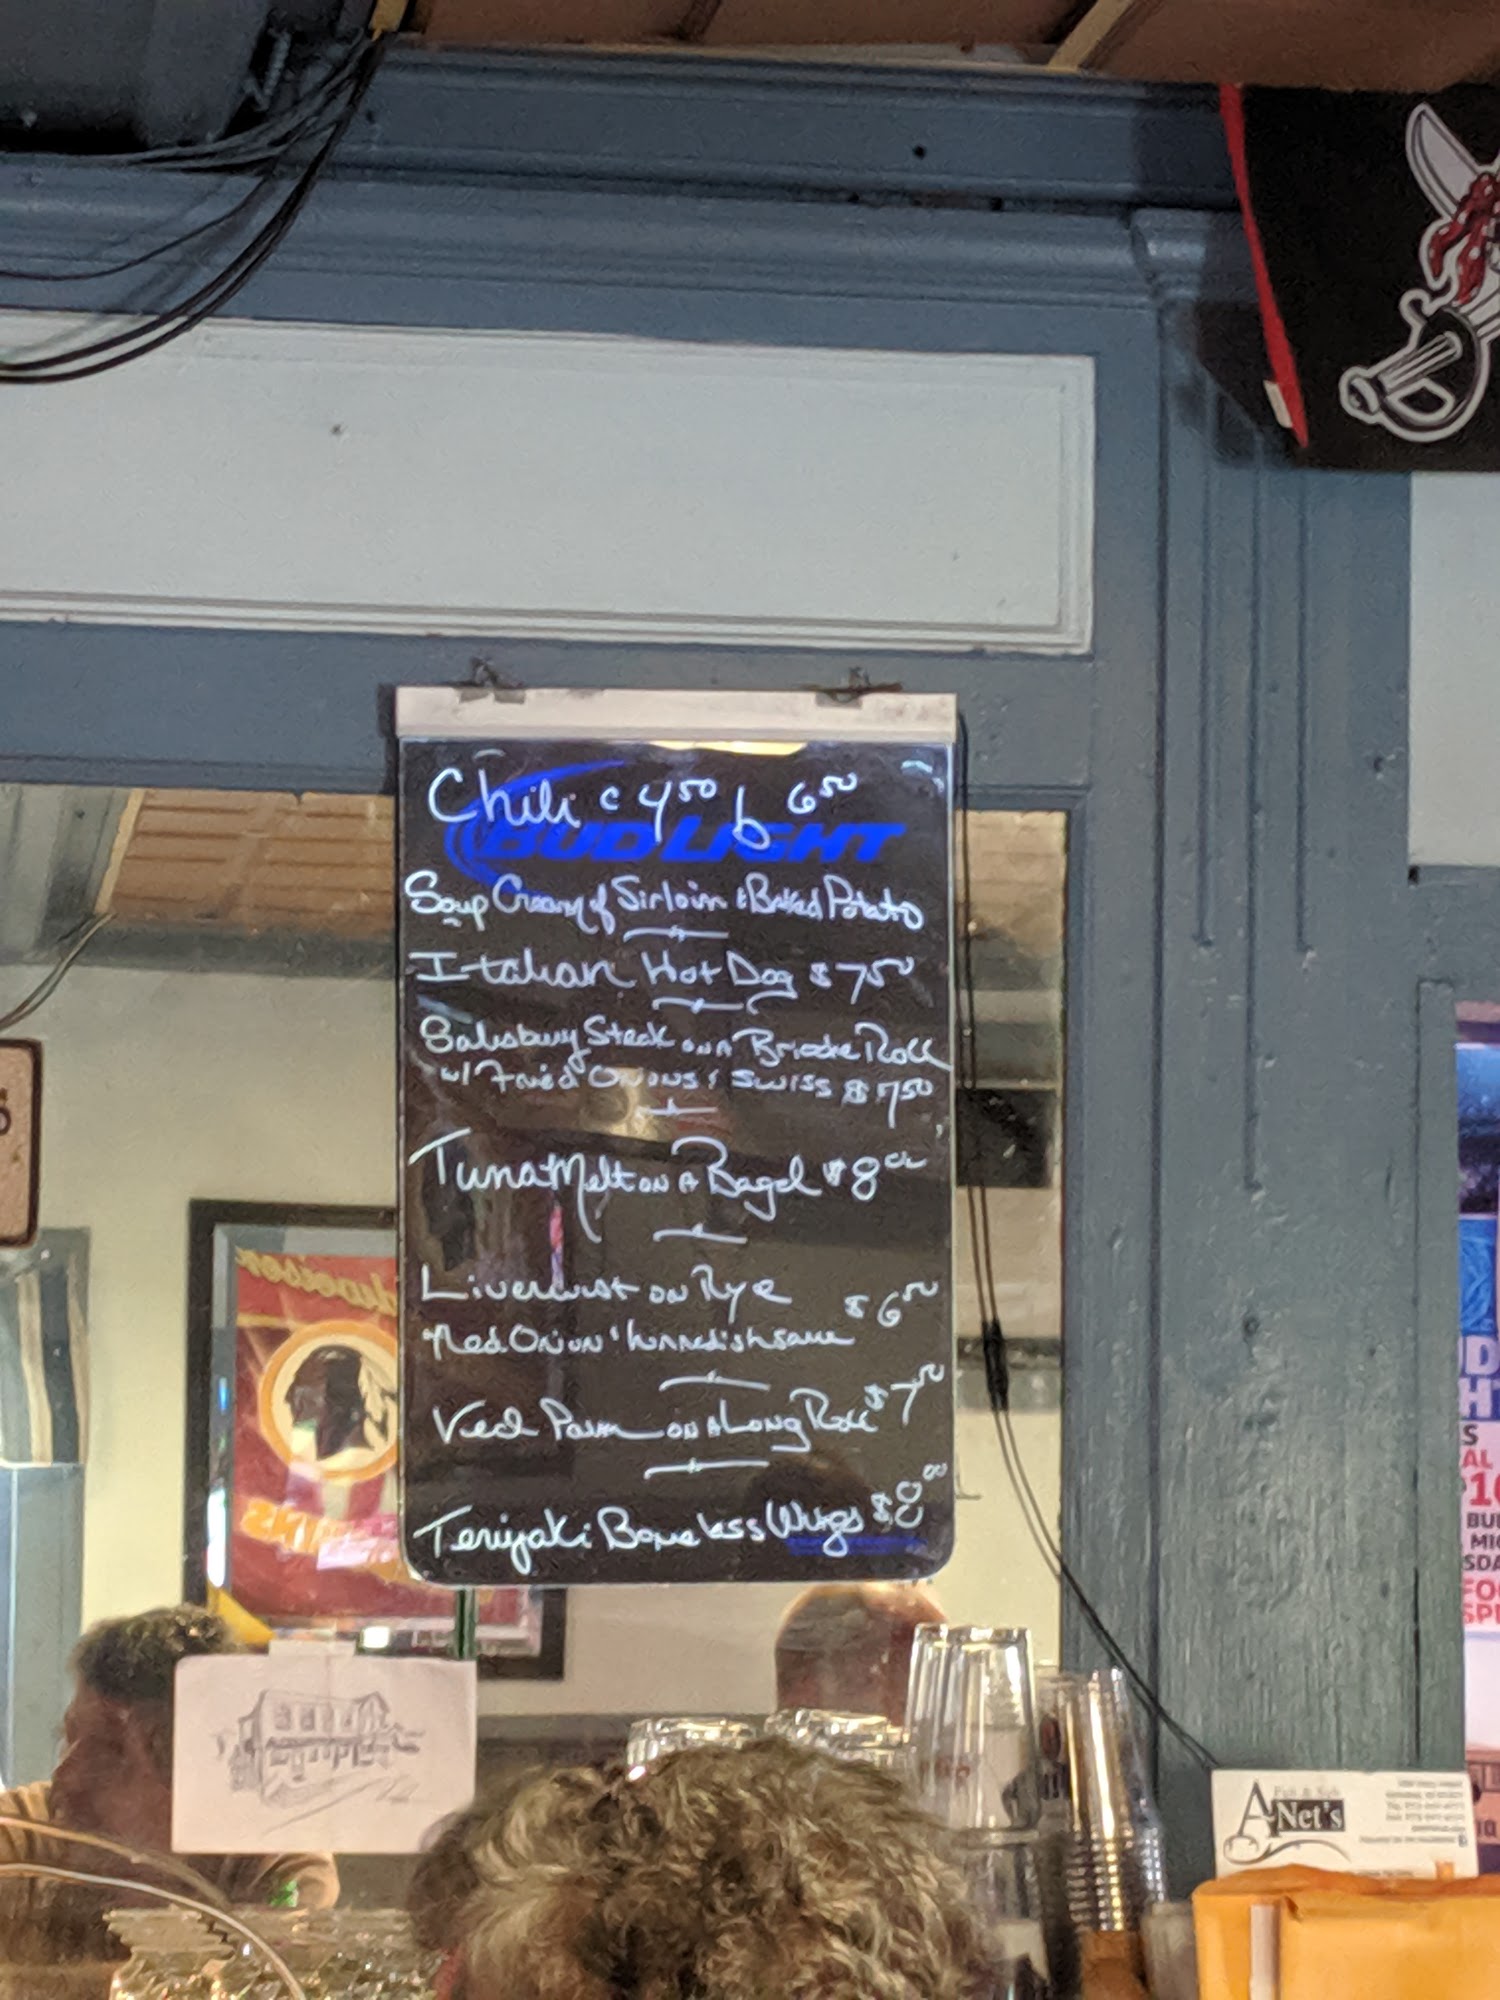 Chili c 4.50 b 6.50
BUD LIGHT
Soup Cream of Sirloin & Baked Potato
Italian Hot Dog $7.50
Salisbury Steak on A Brioche Roll
w/ Fried Onions & Swiss $7.50
Tuna Melt on A Bagel $8.00
Liverwurst on Rye $6.50
Red Onion & horseradish sauce
Veal Parm on A Long Roll $7.50
Teriyaki Boneless Wings $8.00
A-Net's